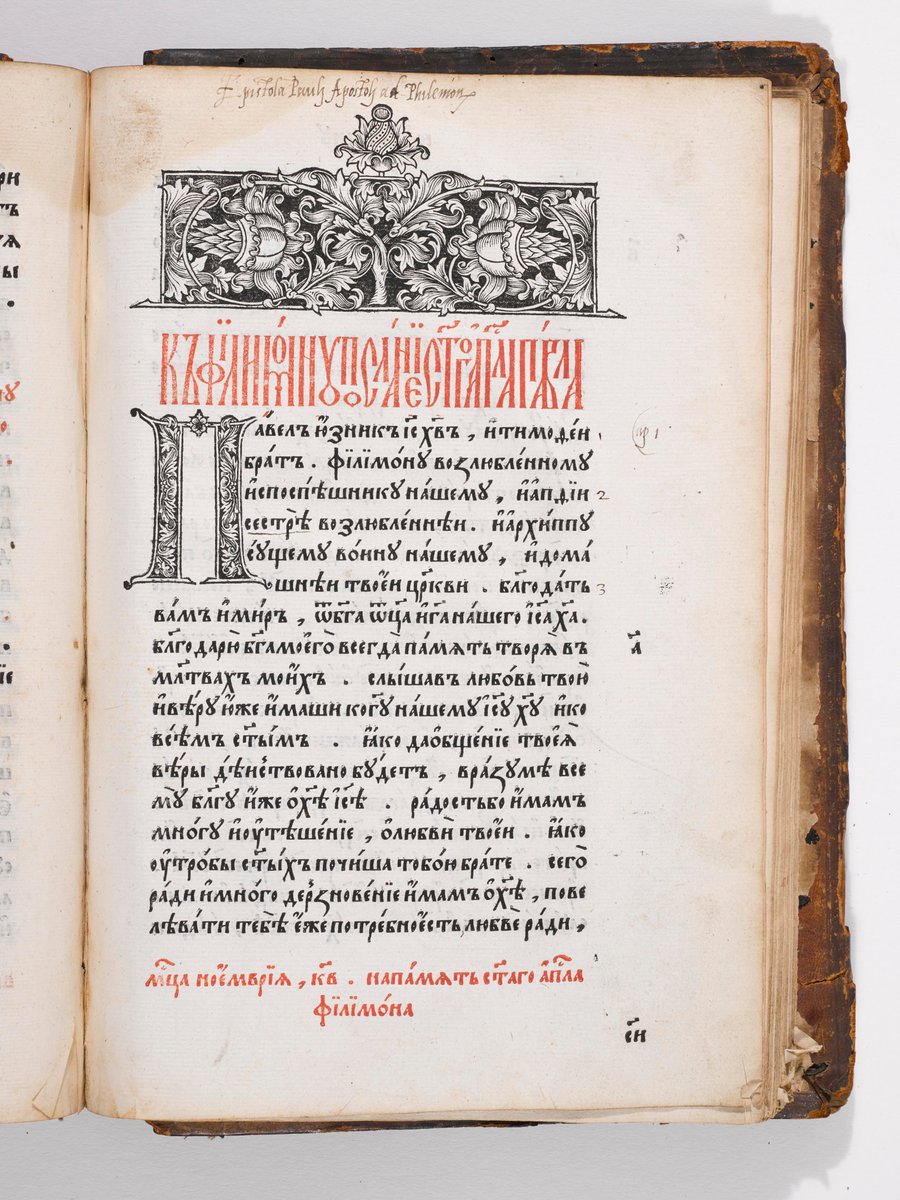 Epistola Pauli Apostoli ad Philemon
Къ філимону посланїе ст҃го ап҃ла па́вла
Па́велъ ю҆́зникъ і҆с х҃въ, и҆ тимоѳе́и
бра́тъ. філімо́ну возлю́бленному
и҆ споспѣ́шнику на́шему, и҆ а҆пфі́и
сестрѣ̀ возлю́бленнѣи. и҆ а҆рхи́ппу
су́щему во́ину на́шему, и҆ дома́
шнѣи твое́и цр҃кви. бл҃года́ть
ва́мъ и҆ ми́ръ, ѿ бг҃а ѿц҃а и҆ г҃а на́шего і҆с҃а х҃а.
бл҃годарю̀ бг҃а моего̀ всегда̀ па́мять творѧ̀ въ
мл҃твахъ мои́хъ. слы́шавъ любо́вь твою̀
и҆ вѣ́ру ю҆́же и҆́маши ко г҃у на́шему і҆с҃у х҃у и҆ ко
всѣ́мъ ст҃ы́мъ. ꙗ҆́ко да ѻ҆бще́нїе твоеѧ̀
вѣ́ры дѣ́иствовано бу́детъ, в ра́зумѣ все
мꙋ̀ бл҃гу и҆́же ѻ҆ х҃ѣ і҆с҃ѣ. ра́дость бо и҆́мамъ
мно́гу и҆ оу҆тѣше́нїе, ѻ҆ любвѝ твое́и. ꙗ҆́ко
оу҆тро́бы ст҃ы́хъ почи́ша тобо́ю бра́те. сего̀
ра́ди и҆ мно́го дерзнове́нїе и҆́мамъ ѻ҆ х҃ѣ, пове
лѣва́ти тебѣ̀ е҆́же потре́бно е҆́сть, любвѐ ра́ди,
мц҃а ное́мврїя, кв. на па́мять ст҃а́го а҆п҃ла
філімо́на
1
2
3
а҃
сн҃